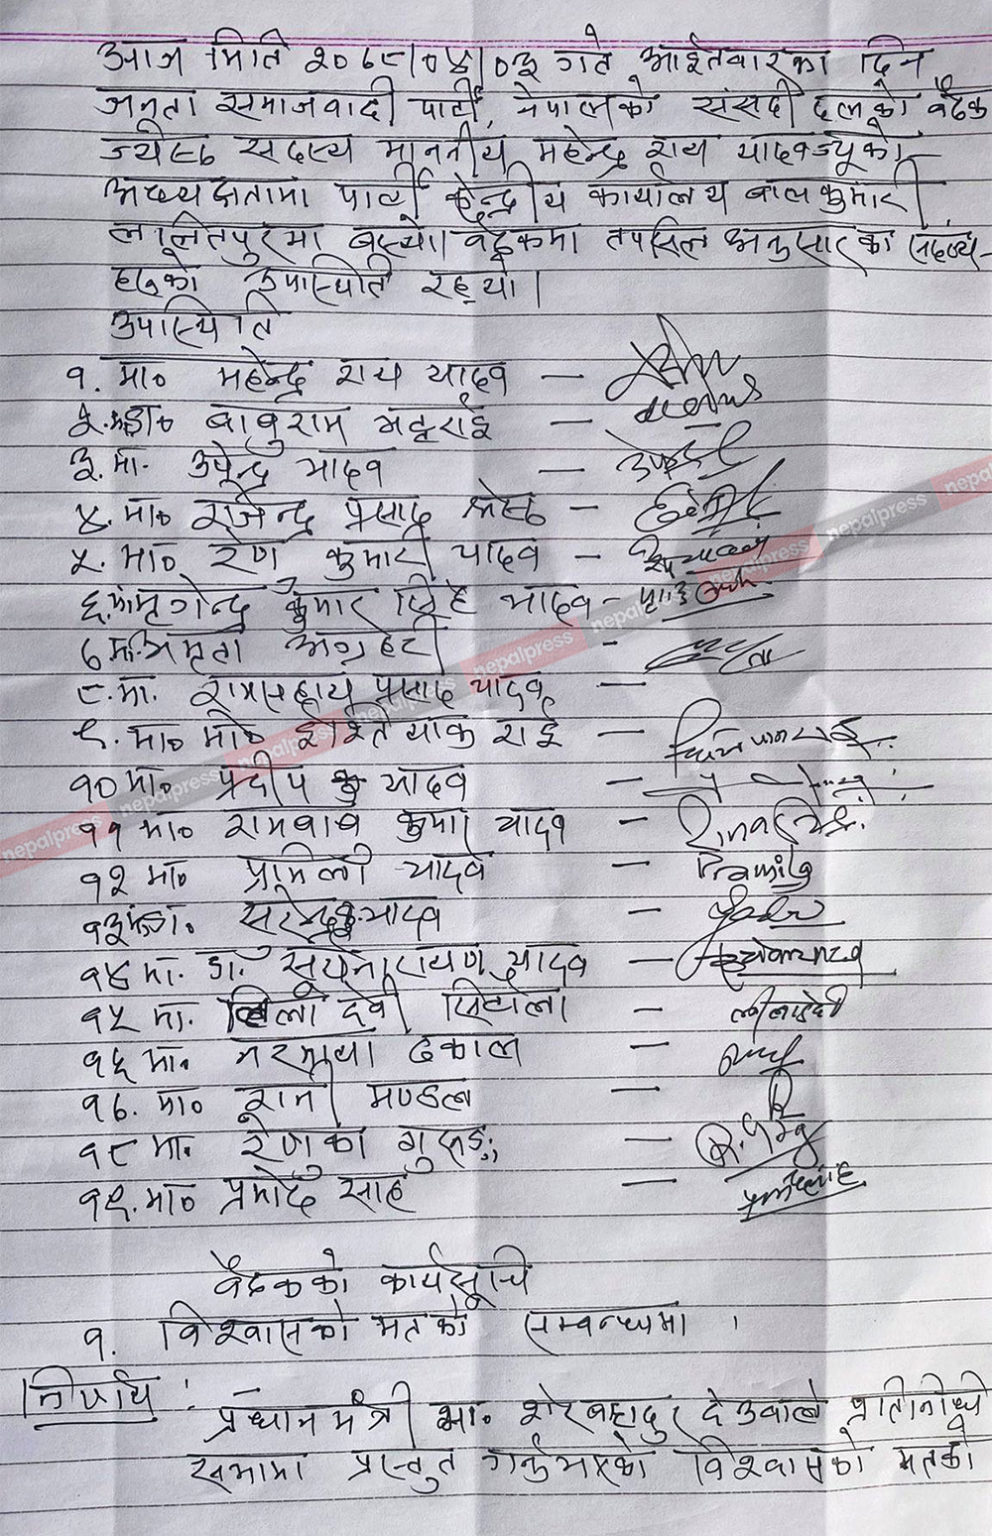 आज मिति २०७८|०४|०३ गते आईतवारका दिन
जनता समाजवादी पार्टी, नेपालको संसदी दलको बैठक
ज्येष्ठ सदस्य माननीय महेन्द्र राय यादवज्यूको
अध्यक्षतामा पार्टी केन्द्रीय कार्यालय बालकुमारी
ललितपुरमा बस्यो। बैठकमा तपसिल अनुसारका सदस्य-
हरुको उपस्थिती रह्यो।
उपस्थिति
१. मा० महेन्द्र राय यादव —
२. मा० बाबुराम भट्टराई —
३. मा. उपेन्द्र यादव —
४. मा० राजेन्द्र प्रसाद श्रेष्ठ —
५. मा० रेणु कुमारी यादव —
६. मा. मृगेन्द्र कुमार सिंह यादव —
७ मा. अमृता अग्रहरी —
८. मा. रामसहाय प्रसाद यादव —
९. मा० मो० इश्तियाक राई —
१० मा. प्रदीप यादव —
११ मा० रामबाबु कुमार यादव —
१२ मा० प्रमिला यादव — Pramila
१३ मा. सुरेन्द्र कु. यादव —
१४ मा. डा. सूर्यनारायण यादव —
१५ मा. लिला देवी सिटौला — लीलादेवी
१६ मा. नरमाया ढकाल —
१७. मा० रानी मण्डल —
१८ मा. रेणुका गुरुङ —
१९. मा० प्रमोद साह —
बैठकको कार्यसूचि
१. विश्वासको मतको सम्बन्धमा ।
निर्णय : —
प्रधानमंत्री मा. शेरबहादुर देउवाले प्रतिनिधि
सभामा प्रस्तुत गर्नुभएको विश्वासको मतको
nepalpress nepalpress nepalpress nepalpress nepalpress nepalpress nepalpress nepalpress nepal